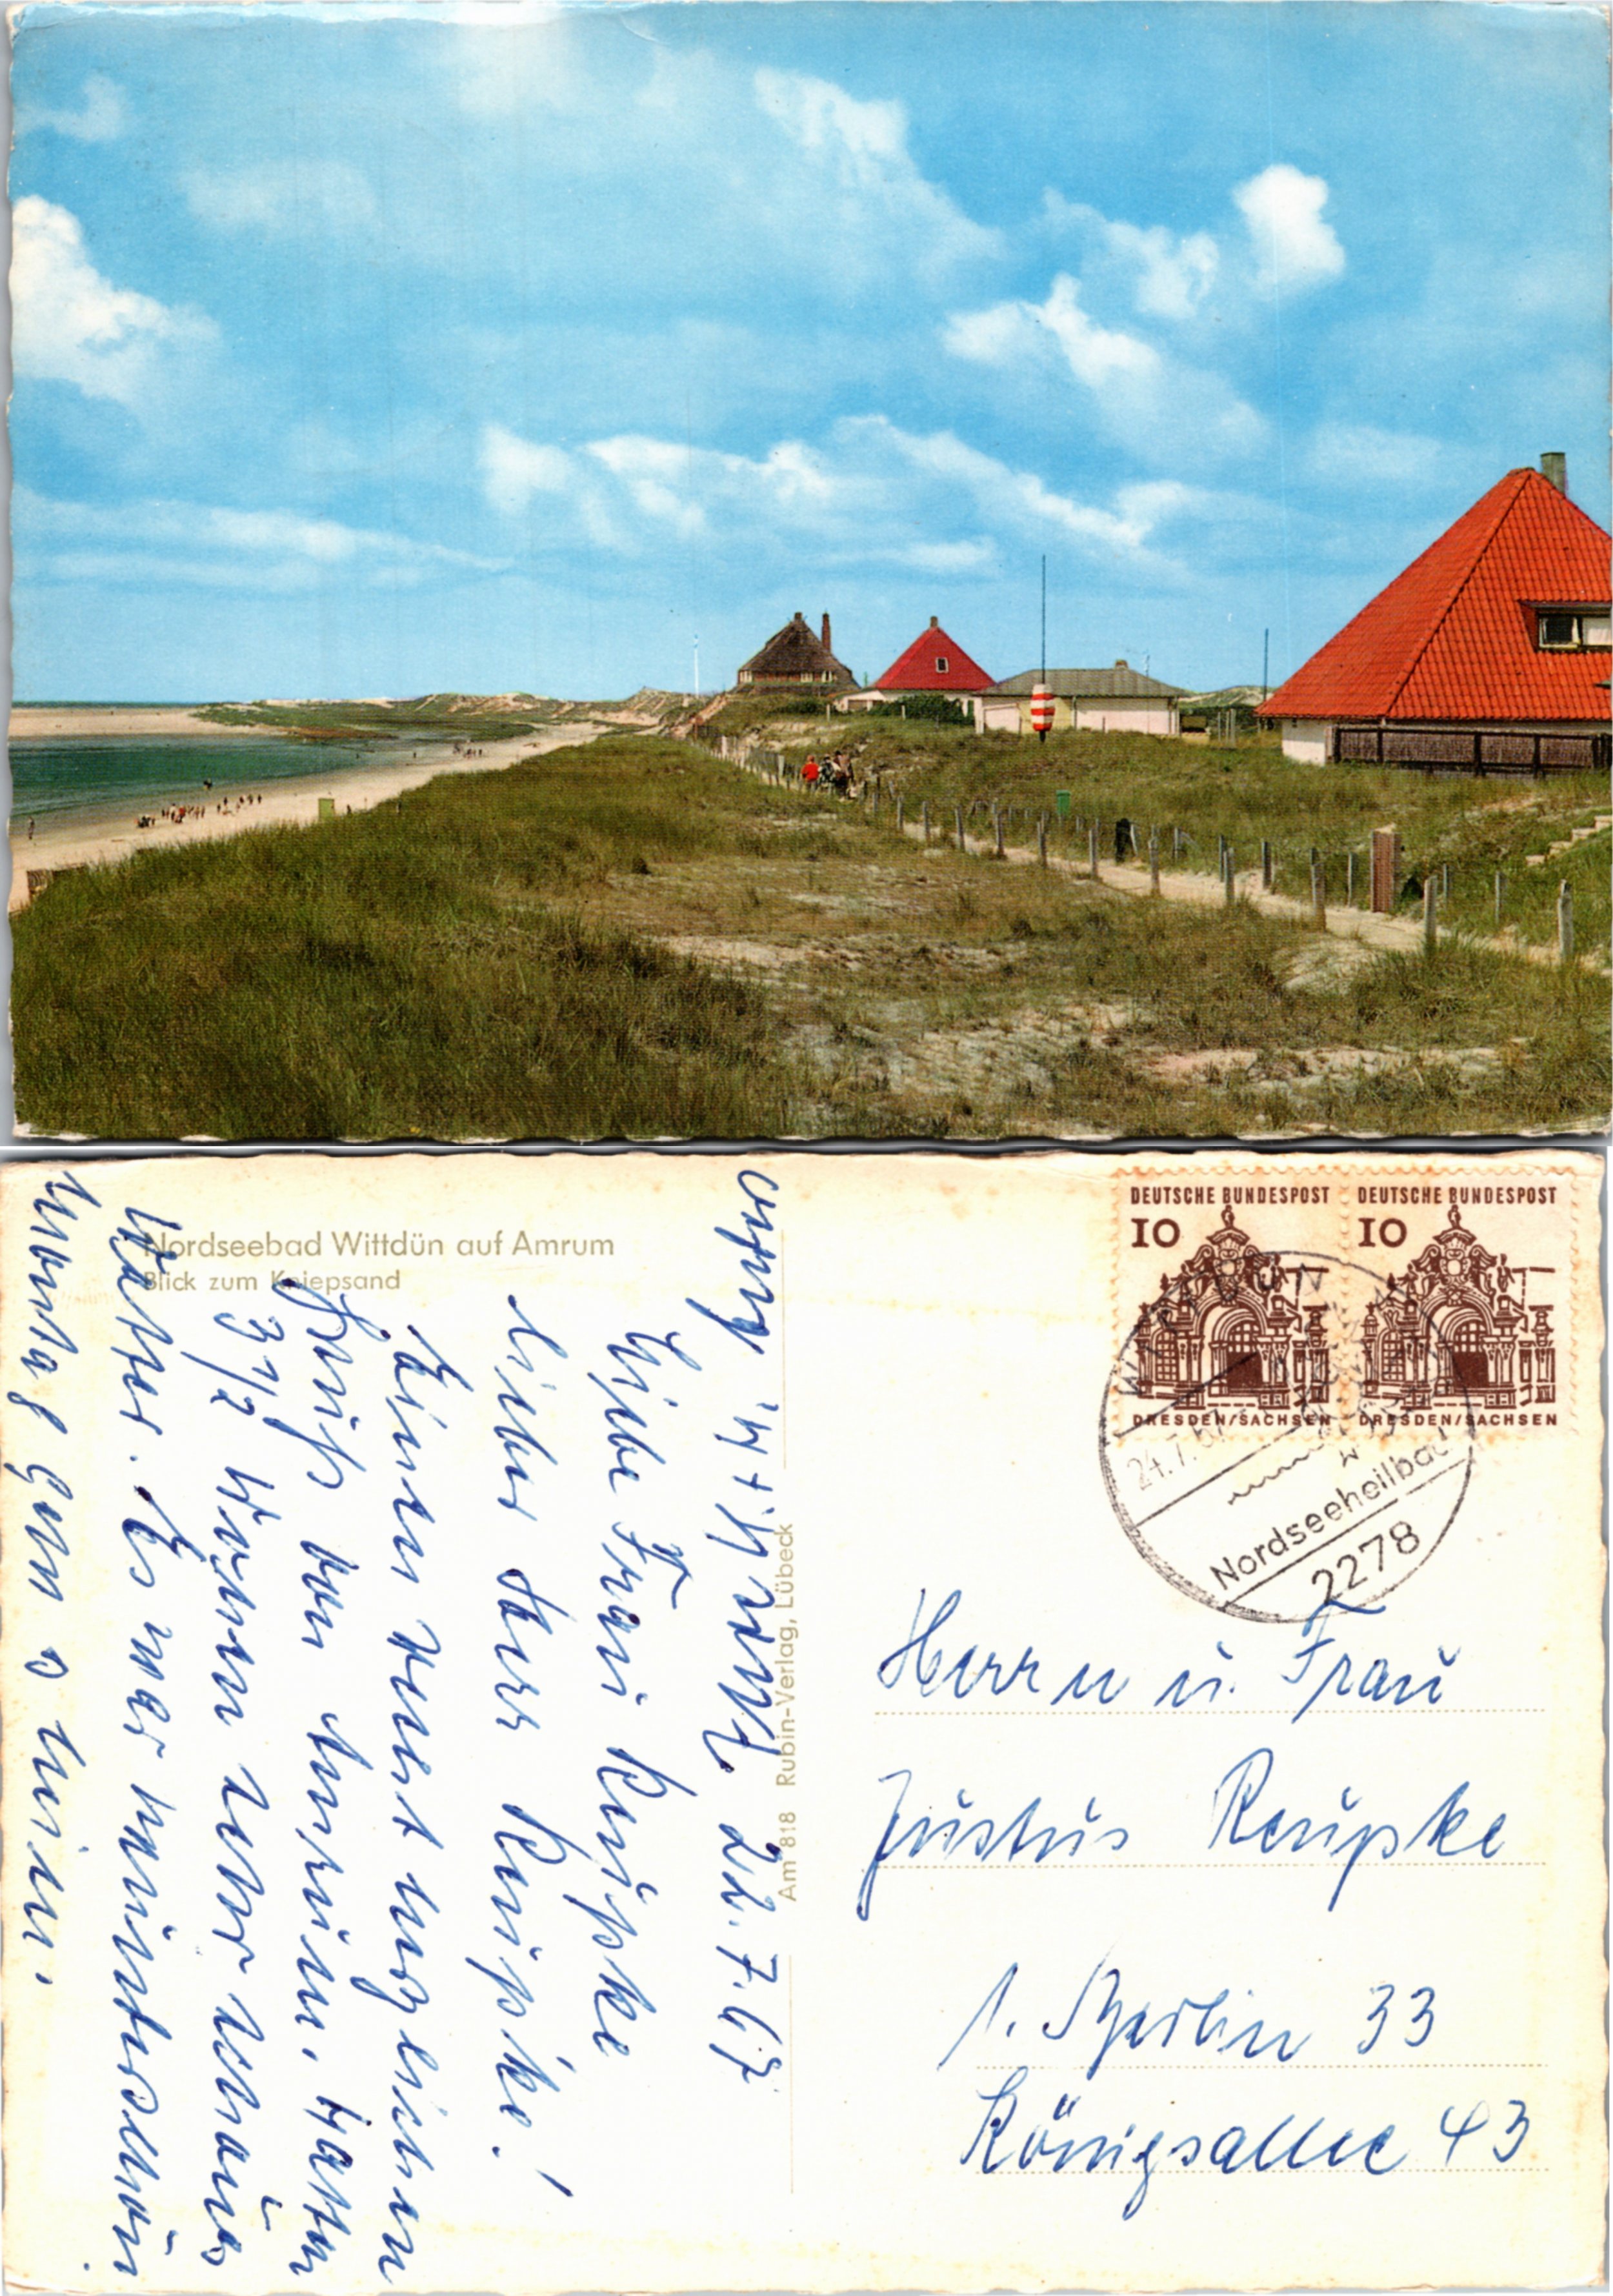 Nordseebad Wittdün auf Amrum
Blick zum Kniepsand
DEUTSCHE BUNDESPOST
10
DRESDEN/SACHSEN
DEUTSCHE BUNDESPOST
10
DRESDEN/SACHSEN
WITTDÜN
24.7.67
Nordseeheilbad
2278
Am 818 Rubin-Verlag, Lübeck
22.7.67
Liebe Frau Reüpke
lieber Herr Reüpke!
Einen recht herzlichen
Grüß von Amrum. Hatten
3 1/2 Wochen sehr schönes
Wetter. Es war wünderschön
Montag gehn's heim.
Herrn ü. Frau
Jüstüs Reüpke
1. Berlin 33
Königsallee 43